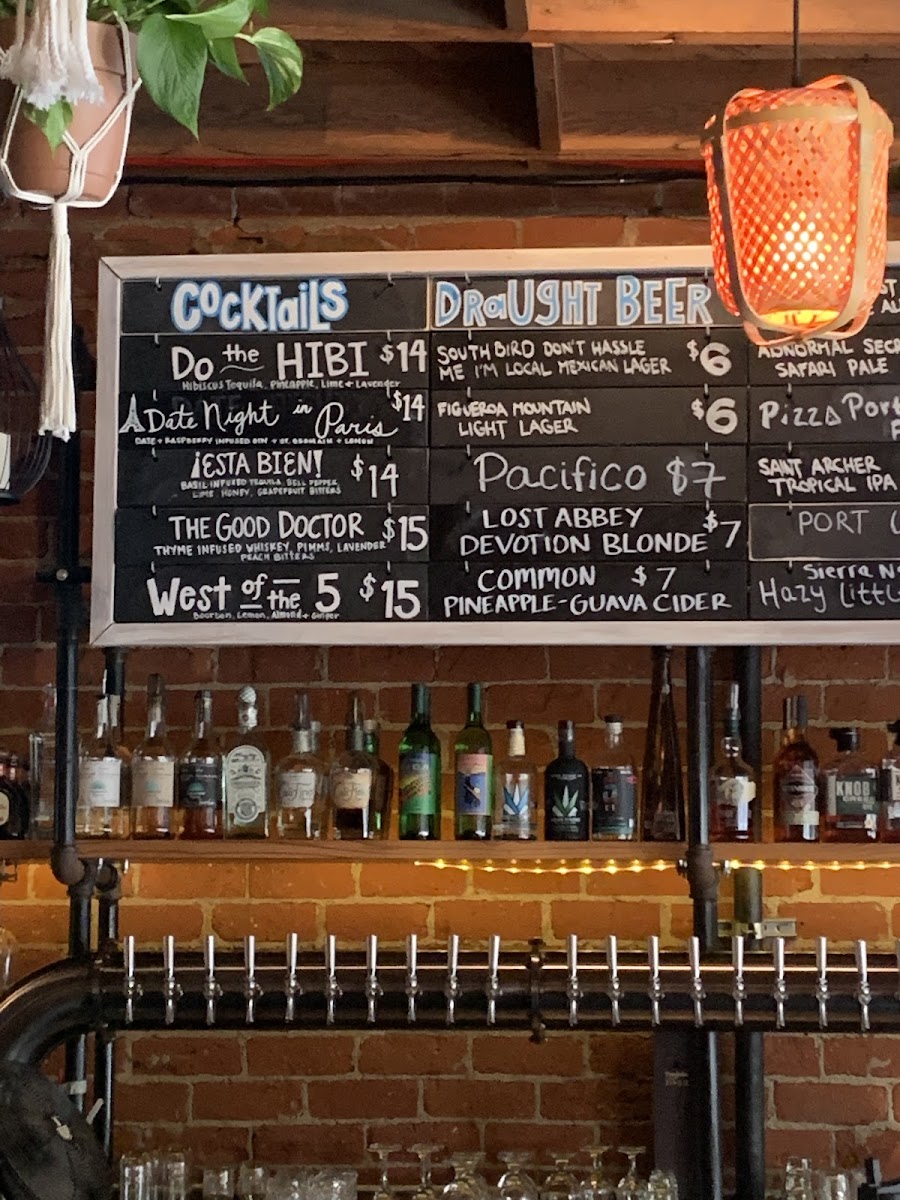 COCKTAILS
Do the HIBI $14
Hibiscus Tequila, Pineapple, Lime + Lavender
Date Night in Paris $14
DATE + RASPBERRY INFUSED GIN + ST. GERMAIN + LEMON
¡ESTA BIEN! $14
BASIL INFUSED TEQUILA, BELL PEPPER,
LIME, HONEY, GRAPEFRUIT BITTERS
THE GOOD DOCTOR $15
THYME INFUSED WHISKEY, PIMMS, LAVENDER
PEACH BITTERS
West of the 5 $15
Bourbon, Lemon, Almond + Ginger
DRAUGHT BEER
SOUTH BIRD DON'T HASSLE
ME I'M LOCAL MEXICAN LAGER $6
FIGUEROA MOUNTAIN
LIGHT LAGER $6
Pacifico $7
LOST ABBEY
DEVOTION BLONDE $7
COMMON $7
PINEAPPLE-GUAVA CIDER
ABNORMAL
SAFARI PALE
Pizza Port
SAINT ARCHER
TROPICAL IPA
PORT
Sierra N
Hazy Little
KNOB